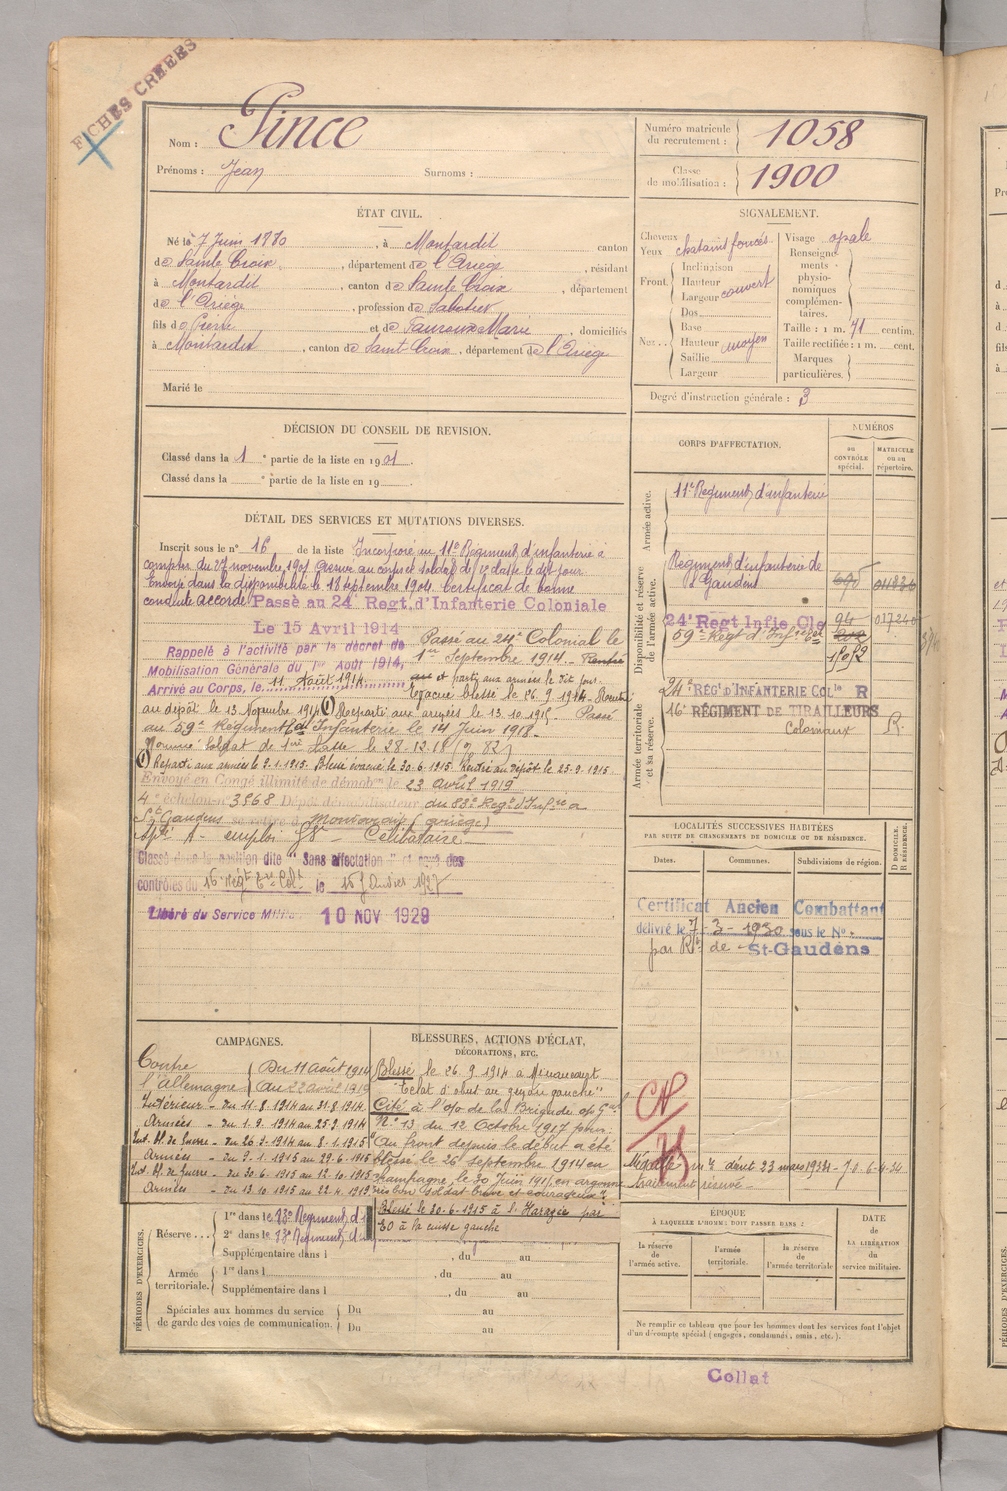 FICHES CRÉÉES
Nom : Pince
Prénoms : Jean Surnoms :
Numéro matricule du recrutement : 1058
Classe de mobilisation : 1900
ÉTAT CIVIL.
Né le 7 Juin 1880, à Montardit canton
de Sainte Croix, département de l'Ariège, résidant
à Montardit, canton de Sainte Croix, département
de l'Ariège, profession de Sabotier
fils de Pierre et de Fauroux Marie, domiciliés
à Montardit, canton de Saint Croix, département de l'Ariège
Marié le
SIGNALEMENT.
Cheveux
Yeux chatains foncés
Front : Inclinaison
Hauteur
Largeur couvert
Nez : Dos
Base
Hauteur moyen
Saillie
Largeur
Visage opale
Renseignements physionomiques complémentaires.
Taille : 1 m. 71 centim.
Taille rectifiée : 1 m. cent.
Marques particulières.
Degré d'instruction générale : 3
DÉCISION DU CONSEIL DE REVISION.
Classé dans la 1e partie de la liste en 1901.
Classé dans la e partie de la liste en 19
CORPS D'AFFECTATION.
NUMÉROS
au CONTRÔLE spécial.
MATRICULE ou au répertoire.
Armée active.
11e Régiment d'infanterie
Disponibilité et réserve de l'armée active.
Régiment d'infanterie de
St Gaudens
24e Regt Infie Cle 94 017240
59e Regt d'Infrie
Armée territoriale et sa réserve.
24e RÉGt D'INFANTERIE COLle R
16e RÉGIMENT DE TIRAILLEURS
Coloniaux R.
DÉTAIL DES SERVICES ET MUTATIONS DIVERSES.
Inscrit sous le n° 16 de la liste Incorporé au 11e Régiment d'infanterie à
compter du 27 novembre 1901 arrivé au corps et soldat de 2e classe le dit jour
Envoyé dans la disponibilité le 18 septembre 1904. Certificat de bonne
conduite accordé Passé au 24 Regt d'Infanterie Coloniale
Le 15 Avril 1914
Rappelé à l'activité par le décret de
Mobilisation Générale du 1er Août 1914,
Arrivé au Corps, le 11 Août 1914
Passé au 24e Colonial le
1er Septembre 1914. Rentré
et parti aux armées le dit jour.
Evacué blessé le 26.9.1914. Rentré
au dépôt le 13 Novembre 1914 (1) Reparti aux armées le 13.10.1915. Passé
au 59e Régiment d'Infanterie le 14 Juin 1918.
Nommé Soldat de 1ère Classe le 28.12.18
(1) Reparti aux armées le 9.1.1915. Blessé évacué le 30.6.1915. Rentré au dépôt le 25.9.1915.
Envoyé en Congé illimité de démobon le 23 avril 1919
4e échelon n° 3968 Dépôt démobilisateur du 83e Régt d'Infrie à
St Gaudens se retire à (Ariège)
Célibataire
Classé dans la position dite "Sans affectation" et rayé des
contrôles du 16 Régt Tirs Colx le 15 Janvier 1927
Libéré du Service Militaire 10 NOV 1929
LOCALITÉS SUCCESSIVES HABITÉES
PAR SUITE DE CHANGEMENTS DE DOMICILE OU DE RÉSIDENCE.
Dates. Communes. Subdivisions de région.
D DOMICILE. R RÉSIDENCE.
Certificat Ancien Combattant
délivré le 7-3-1930 sous le N°
par de St-Gaudens
CAMPAGNES.
Contre l'Allemagne { Du 11 août 1914
au 22 avril 1919
Intérieur - du 11.8.1914 au 31.8.1914
Armées - du 1.9.1914 au 25.9.1914
Int. Bl. de Guerre - du 26.9.1914 au 8.1.1915
Armées - du 9.1.1915 au 29.6.1915
Int. Bl. de Guerre - du 30.6.1915 au 12.10.1915
Armées - du 13.10.1915 au 22.4.1919
BLESSURES, ACTIONS D'ÉCLAT,
DÉCORATIONS, ETC.
Blessé le 26.9.1914 à Minaucourt
"Eclat d'obus au genou gauche"
Cité à l'o/o de la Brigade op Gal
N° 13 du 12 Octobre 1917 pour:
"Au front depuis le début a été
blessé le 26 septembre 1914 en
champagne, le 30 Juin 1915 en argonne
très bon soldat brave et courageux"
Blessé le 30.6.1915 à la Harazée par
à la cuisse gauche
Médaille décret 23 mars 1934 - J.O. 6-4-34
traitement réservé
PÉRIODES D'EXERCICES.
Réserve : 1re dans le Régiment d'i
2e dans le Régiment d'i
Supplémentaire dans l , du au
Armée territoriale. 1re dans l , du au
Supplémentaire dans l , du au
Spéciales aux hommes du service
de garde des voies de communication. Du au
Du au
ÉPOQUE
À LAQUELLE L'HOMME DOIT PASSER DANS :
la réserve de l'armée active.
l'armée territoriale.
la réserve de l'armée territoriale
DATE
de LA LIBÉRATION du service militaire.
Ne remplir ce tableau que pour les hommes dont les services font l'objet
d'un décompte spécial (engagés, condamnés, omis, etc.).
Collat